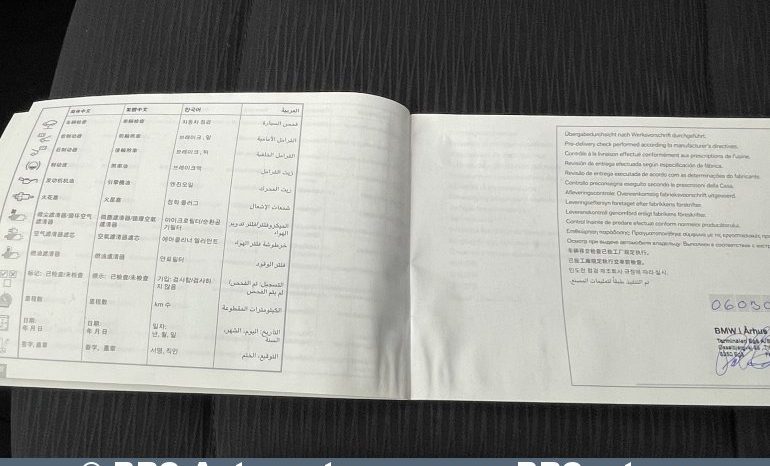 简体中文 繁體中文 한국어 العربية
车辆检查 車輛檢查 자동차 점검 فحص السيارة
前制动器 前輪煞車 브레이크, 앞 الفرامل الأمامية
后制动器 後輪煞車 브레이크, 뒤 الفرامل الخلفية
制动液 煞車油 브레이크액 زيت الفرامل
发动机机油 引擎機油 엔진오일 زيت المحرك
火花塞 火星塞 점화 플러그 شمعات الإشعال
微尘滤清器/循环空气 微塵濾清器/循環空氣 마이크로필터/순환공
滤清器 濾清器 기필터
空气滤清器滤芯 空氣濾清器濾芯 에어클리너 엘리먼트 خرطوشة فلتر الهواء
燃油滤清器 燃油濾清器 연료필터 فلتر الوقود
标记：已检查/未检查 標示：已檢查/未檢查 기입: 검사함/검사하
지 않음
里程数 里程數 km 수 الكيلومترات المقطوعة
日期: 日期: 일자: التاريخ: اليوم، الشهر،
年 月 日 年 月 日 년, 월, 일 السنة
签字, 盖章 簽字，蓋章 서명, 직인 التوقيع، الختم
Übergabedurchsicht nach Werksvorschrift durchgeführt.
Pre-delivery check performed according to manufacturer's directives.
Contrôle à la livraison effectué conformément aux prescriptions de l'usine.
Revisión de entrega efectuada según especificación de fábrica.
Revisão de entrega executada de acordo com as determinações do fabricante.
Controllo preconsegna eseguito secondo le prescrizioni della Casa.
Afleveringscontrole: Overeenkomstig fabrieksvoorschrift uitgevoerd.
Leveringseftersyn foretaget efter fabrikkens forskrifter.
Leveranskontroll genomförd enligt fabrikens föreskrifter.
Control înainte de predare efectuat conform normelor producătorului.
Επιθεώρηση παράδοσης: Πραγματοποιήθηκε σύμφωνα με τις
Осмотр при выдаче автомобиля владельцу: Выполнен в соответствии с
车辆移交检查已按工厂规定执行。
已按工廠規定執行交車前檢查。
인도전 점검 제조회사 규정에 따라 실시.
تم التنفيذ طبقا لتعليمات المصنع.
0603
BMW i Århus
Terminalen
8260